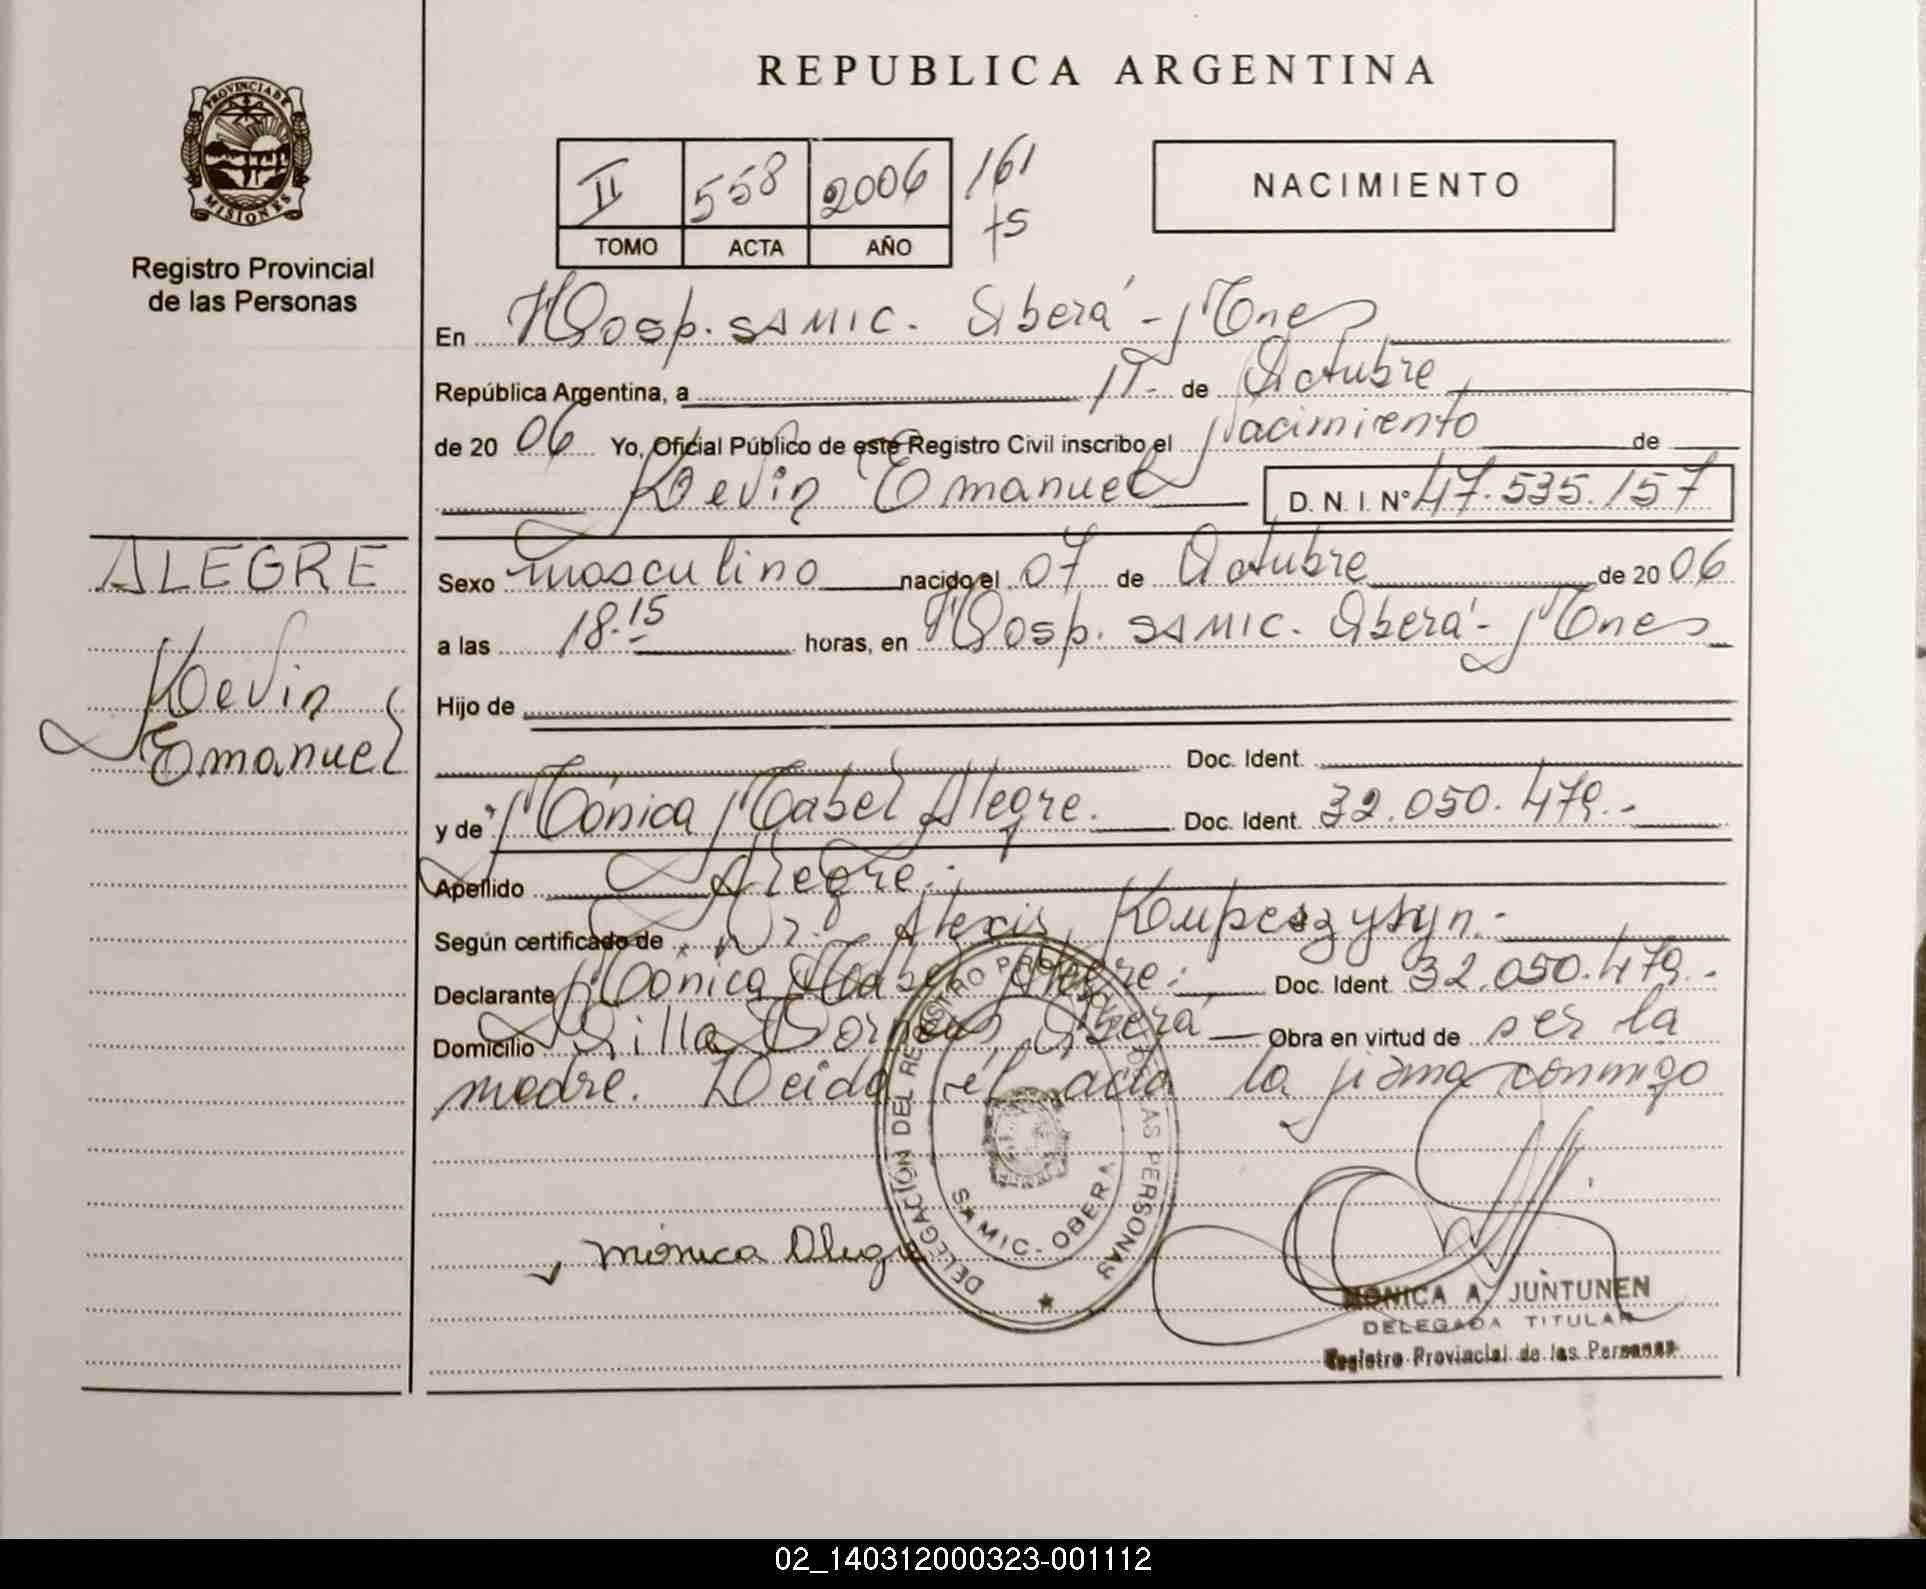 REPUBLICA ARGENTINA
PROVINCIA DE
MISIONES
Registro Provincial
de las Personas
II 558 2006 161
TOMO ACTA AÑO
NACIMIENTO
En Hosp. SAMIC. Oberá - Mnes
República Argentina, a 17- de Octubre
de 20 06 Yo, Oficial Público de este Registro Civil inscribo el Nacimiento de
Kevin Emanuel D. N. I. Nº 47.535.157
ALEGRE
Kevin
Emanuel
Sexo masculino nacido el 07 de Octubre de 20 06
a las 18.15 horas, en Hosp. SAMIC. Oberá - Mnes
Hijo de
Doc. Ident.
y de Mónica Mabel Alegre. Doc. Ident. 32.050.479.-
Apellido Alegre.
Según certificado de Dr. Alexis,
Declarante Mónica Mabel Alegre. Doc. Ident. 32.050.479.-
Domicilio Villa Oberá Obra en virtud de ser la
madre. Leida el acta la firma conmigo
DELEGACIÓN DEL REGISTRO PROVINCIAL DE LAS PERSONAS
SAMIC - OBERA
Mónica Alegre
MONICA A. JUNTUNEN
DELEGADA TITULAR
Registro Provincial de las Personas
02_140312000323-001112